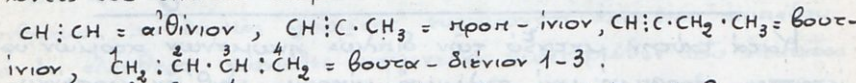 CH⋮CH = αἰθίνιον, CH⋮C·CH₃ = προπ-ίνιον, CH⋮C·CH₂·CH₃ = βουτ-
ίνιον, CH₂:CH·CH:CH₂ = βουτα-διένιον 1-3.